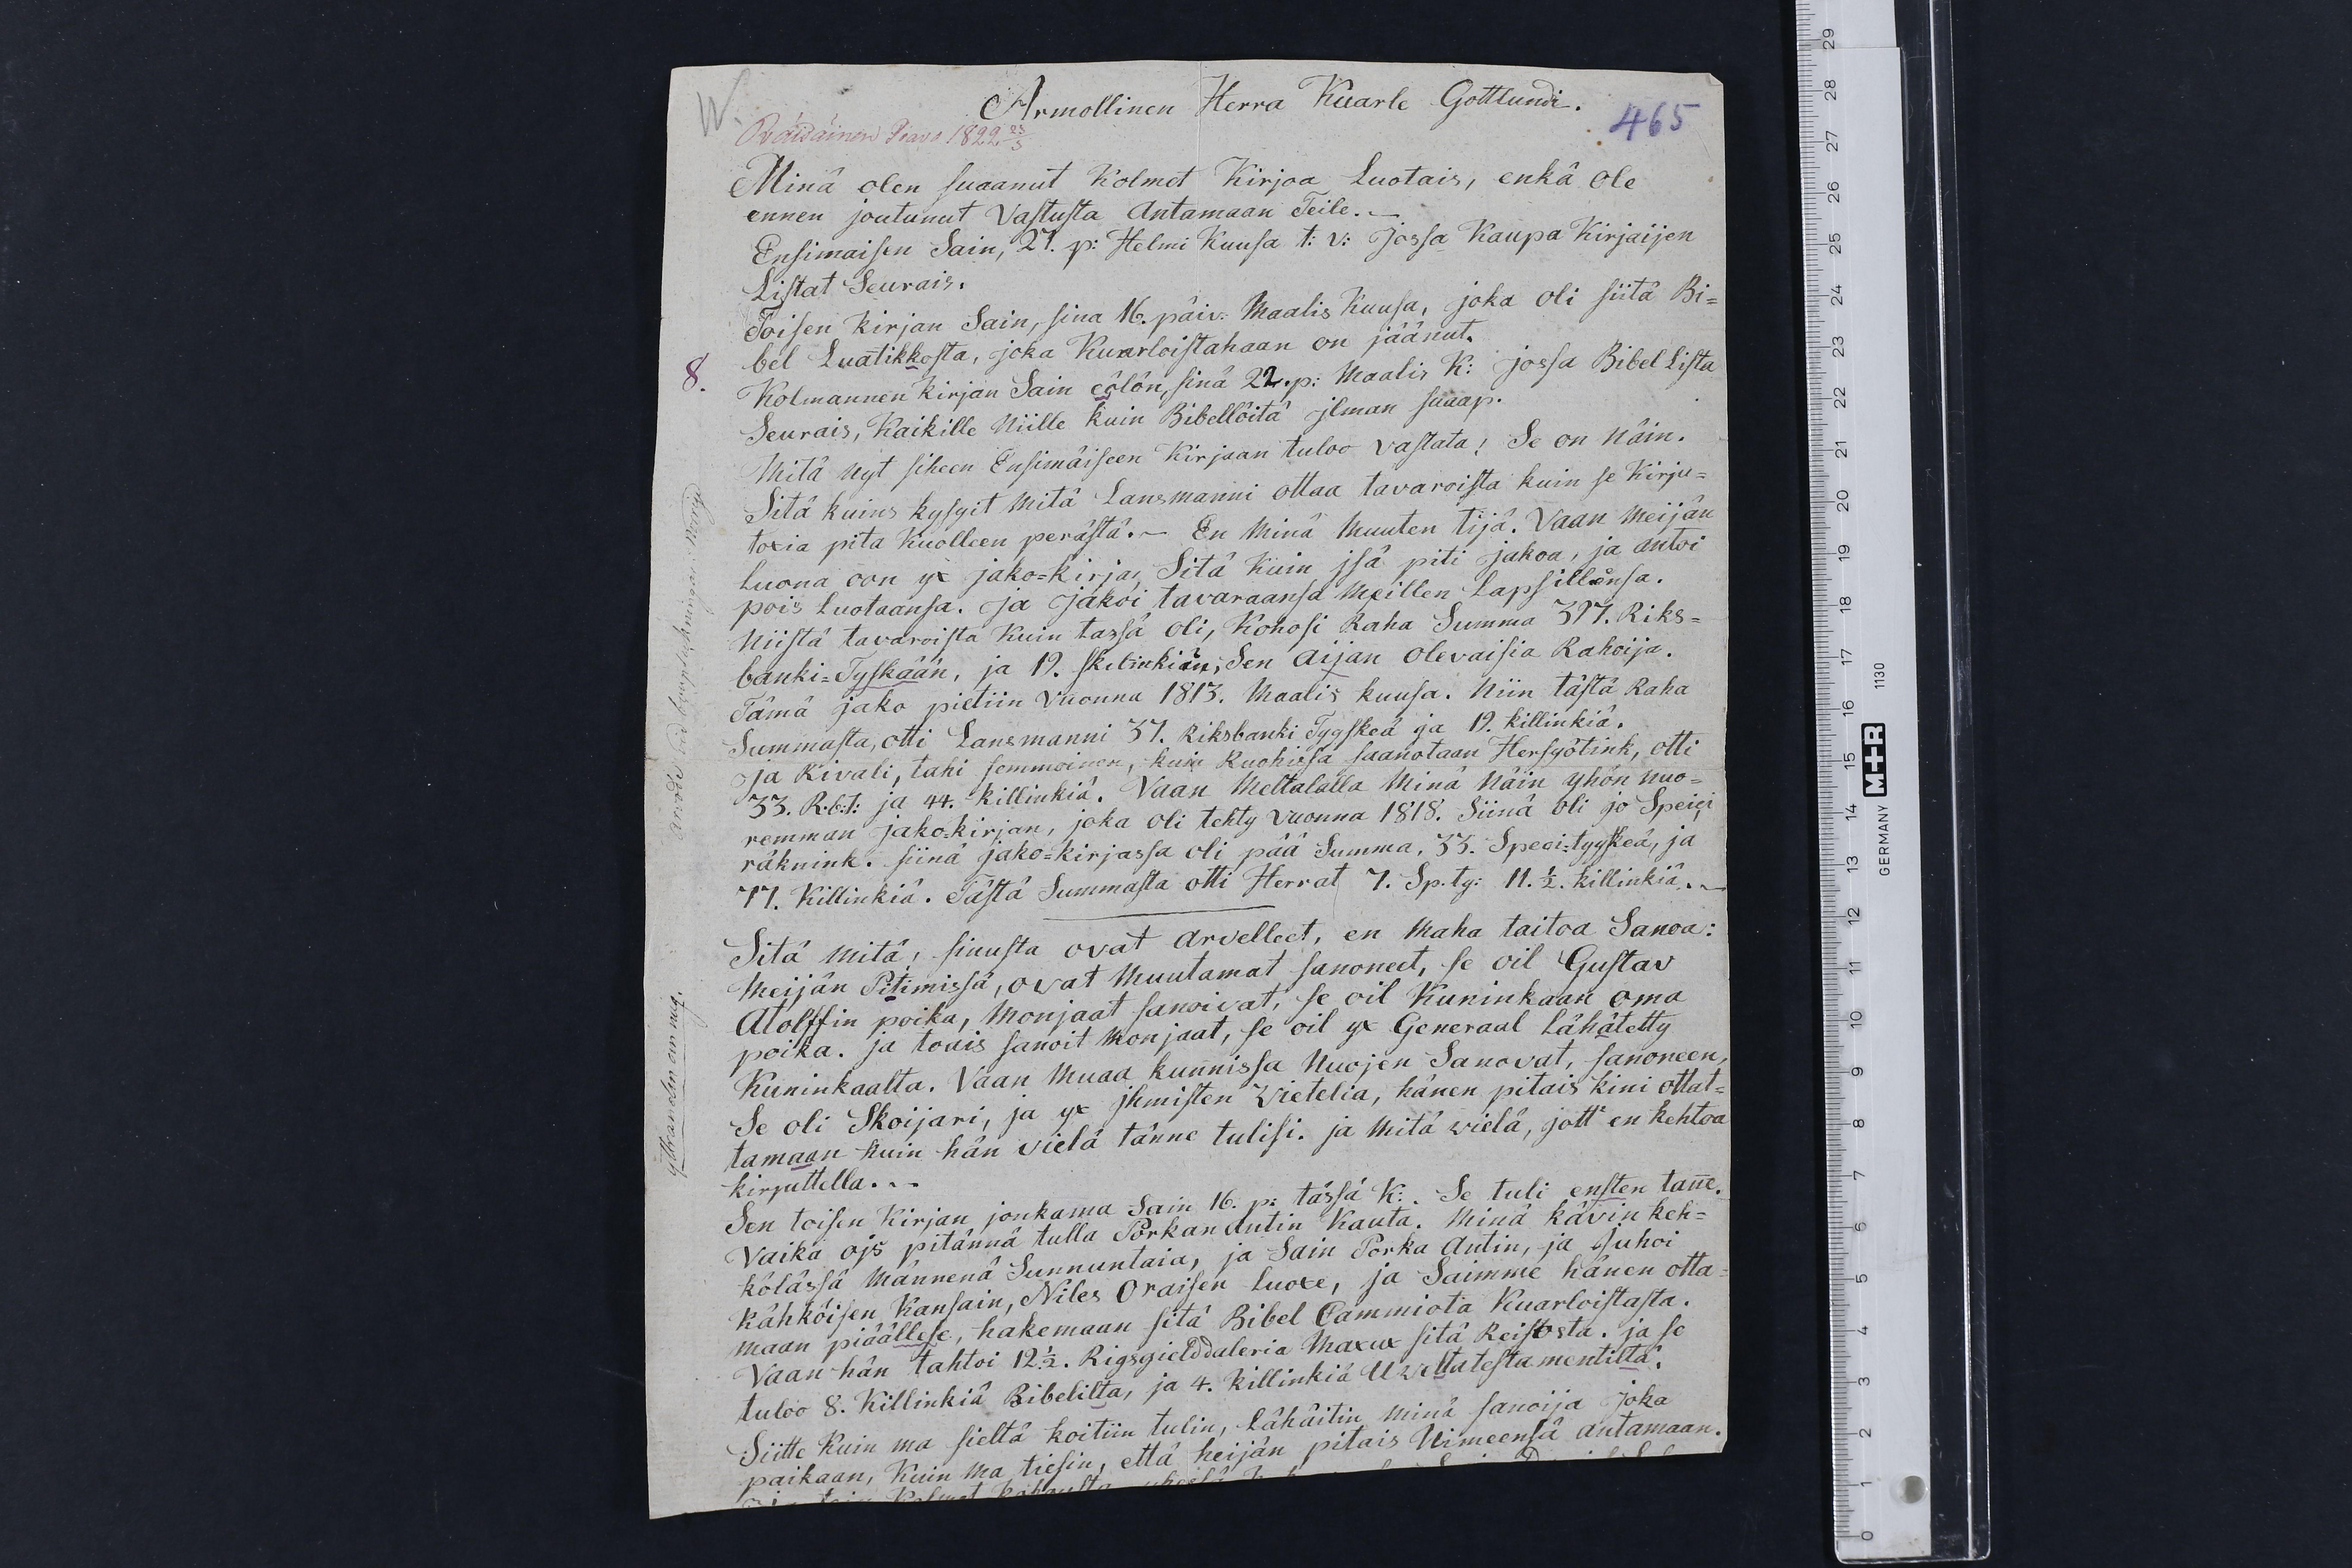 W.
Armollinen Herra Kuarle Gottlundi.
465
Räisäinen Pavo 1822 23/3
Minä olen suaanut Kolmet Kirjoa Luotais, enkä ole
ennen joutunut Vastusta Antamaan Teile. —
Ensimaisen Sain, 27. p: Helmi Kuusa t: v: Jossa Kaupa Kirjaijen
Listat Seurais.
Toisen kirjan Sain, sina 16. päiv: Maalis Kuusa, joka oli siitä Bi=
bel Luatikkosta, joka Kuarloistahaan on jäänut.
8.
Kolmannen kirjan Sain eölön, sinä 22. p: Maalis K: jossa Bibel Lista
Seurais, Kaikille Niille kuin Bibellöitä jlman suaap.
Mitä Nyt siheen Ensimäiseen Kirjaan tuloo vastata! Se on Näin.
Sitä kuins kysyit Mitä Lansmanni ottaa tavaroista kuin se Kirju=
toxia pita Kuolleen perästä. — En Minä Muuten tijä. Vaan Meijän
Luona oon yx jako=kirja, Sitä kuin jsä piti jakoa, ja antoi
pois Luotaansa. ja jakoi tavaraansa Meillen Lapsillensa.
Niistä tavaroista Kuin tassä oli, Kohosi Raha Summa 397. Riks=
banki=Tyskään, ja 19. skilinkiän; Sen Aijan olevaisia Rahoija.
Tämä jako pietiin Vuonna 1813. Maalis kuusa. Niin tästä Raha
Summasta, otti Lansmanni 37. Riksbanki Tygskeä ja 19. killinkiä.
ja Rivali, tahi semmoinen, kuin Ruohissa suanotaan Hersyötink, otti
33. R.b.t: ja 44. killinkiä. Vaan Meltalalla Minä Näin yhön nuo=
remman jako=kirjan, joka oli tehty Vuonna 1818. Siinä oli jo Speiçi
räknink. siinä jako=kirjassa oli pää Summa. 33. Speci=tyyskeä, ja
77. Killinkiä. Tästä Summasta otti Herrat 7. Sp. ty: 11. ½. killinkiä. —
Sitä Mitä, sinusta ovat Arvelleet, en Maha taitoa Sanoa:
Meijän Pitimissä, ovat Muutamat sanoneet, se oil Gustav
Atolffin poika, Monjaat sanoivat, se oil Kuninkaan oma
poika. ja touis sanoit Monjaat, se oil yx Generaal Lähätetty
Kuninkaalta. Vaan Muaa kunnissa Nuojen Sanovat, sanoneen,
Se oli Skoijari, ja yx jhmisten Wietelia, hänen pitais kini ottat=
tamaan kuin hän vielä tänne tulisi. ja Mitä vielä, jott' en kehtoa
kirjuttella. —
Sen toisen Kirjan jonkama Sain 16. p: tässä K:. Se tuli ensten tañe.
Vaika ojs pitännä tulla Porkan Antin Kauta. Minä kävin keh=
kölässä Männenä Sunnuntaia, ja Sain Porka Antin, ja Juhoi
Kähköisen Kansain, Niles Oraisen luoxe, ja Saimme hänen otta=
maan piäällese, hakemaan sitä Bibel Cammiota Kuarloistasta.
Vaan hän tahtoi 12.½. Rigsgielddaleria Maxux sitä Reistosta. ja se
tuloo 8. Killinkiä Bibelilta, ja 4. Killinkiä Uveltatestamentilta.
Siitte Kuin ma sieltä koitiin tulin, Lähäitin minä sanoija joka
paikaan, Kuin Ma tiesin, että heijän pitais Nimeensä antamaan.